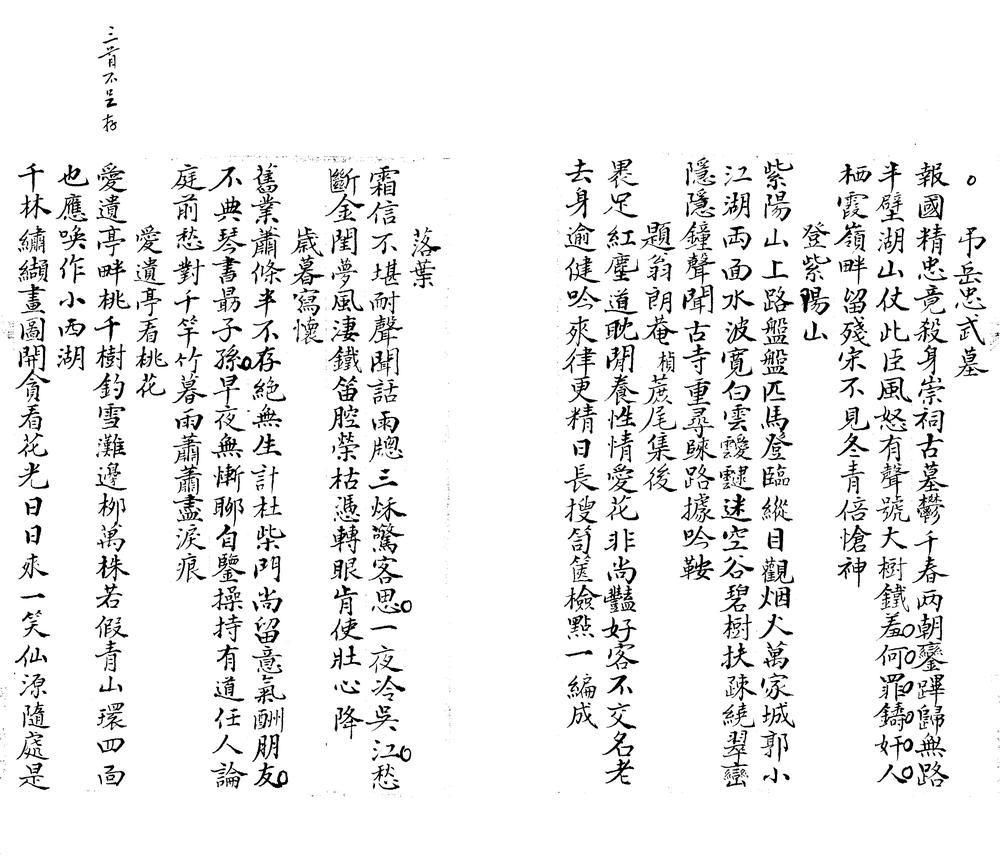 弔岳忠武墓
報國精忠竟殺身崇祠古墓鬱千春两朝鑾蹕歸無路
半壁湖山仗此臣風怒有聲號大樹鐵羞何罪鑄奸人
栖霞嶺畔留殘宋不見冬青倍愴神
登紫陽山
紫陽山上路盤盤匹馬登臨縱目觀烟火萬家城郭小
江湖两面水波寬白雲靉靆迷空谷碧樹扶疎繞翠巒
隱隱鐘聲聞古寺重尋踈路據吟鞍
題翁朗菴楨蔗尾集後
褁足紅塵道眈閒養性情愛花非尚豔好客不交名老
去身逾健吟來律更精日長搜笥篋檢點一編成
落葉
霜信不堪耐聲聞話雨牕三秌驚客思一夜冷吳江愁
斷金閨夢風淒鐵笛腔榮枯憑轉眼肯使壯心降
歲暮寫懷
舊業蕭條半不存絕無生計杜柴門尚留意氣酬朋友
不典琴書勗子孫早夜無慚聊自鑒操持有道任人論
庭前愁對千竿竹暮雨蕭蕭盡淚痕
愛遺亭看桃花
愛遺亭畔桃千樹釣雪灘邊栁萬株若假青山環四面
也應喚作小西湖
千林繡纈畫圖開貪看花光日日來一笑仙源隨處是
三首不足存